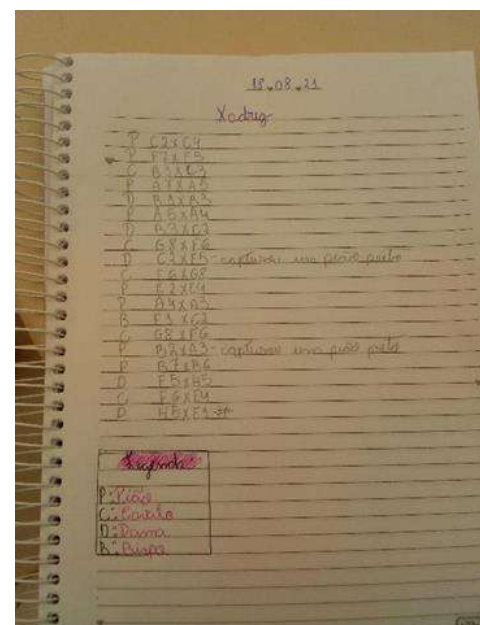 18.08.21
Xadrez
P C2xC4
P F7xF5
C B1xC3
P A7xA5
D
P A5xA4
D B3xC2
C G8xF6
D C2xF5 - capturou um pião preto
C F6xG8
P E2xE4
P A4xA3
B F1xE2
C G8xF6
P B2xA3 - capturou um pião preto
P B7xB6
D F5xH5
C F6xE4
D
Legenda:
P: Pião
C: Cavalo
D: Dama
B: Bispo